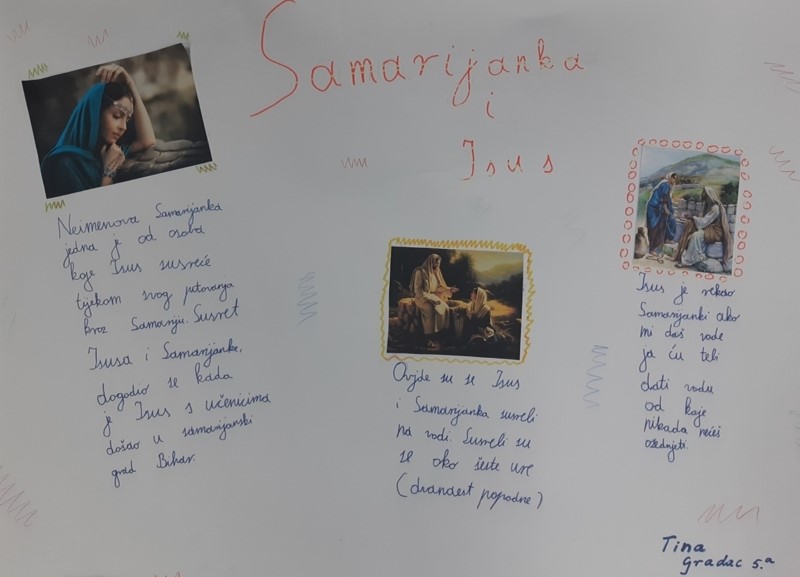 Samarijanka
i
Isus
Neimenova Samarijanka
jedna je od osoba
koje Isus susreće
tijekom svog putovanja
kroz Samariju. Susret
Isusa i Samarijanke,
dogodio se kada
je Isus s učenicima
došao u samarijanski
grad Bihar.
Ovdje su se Isus
i Samarijanka susreli
na vodi. Susreli su
se oko šeste ure
(dvanaest popodne)
Isus je rekao
Samarijanki ako
mi daš vode
ja ću tebi
dati vodu
od koje
nikada nećeš
ožednjeti.
Tina
Gradac 5.a